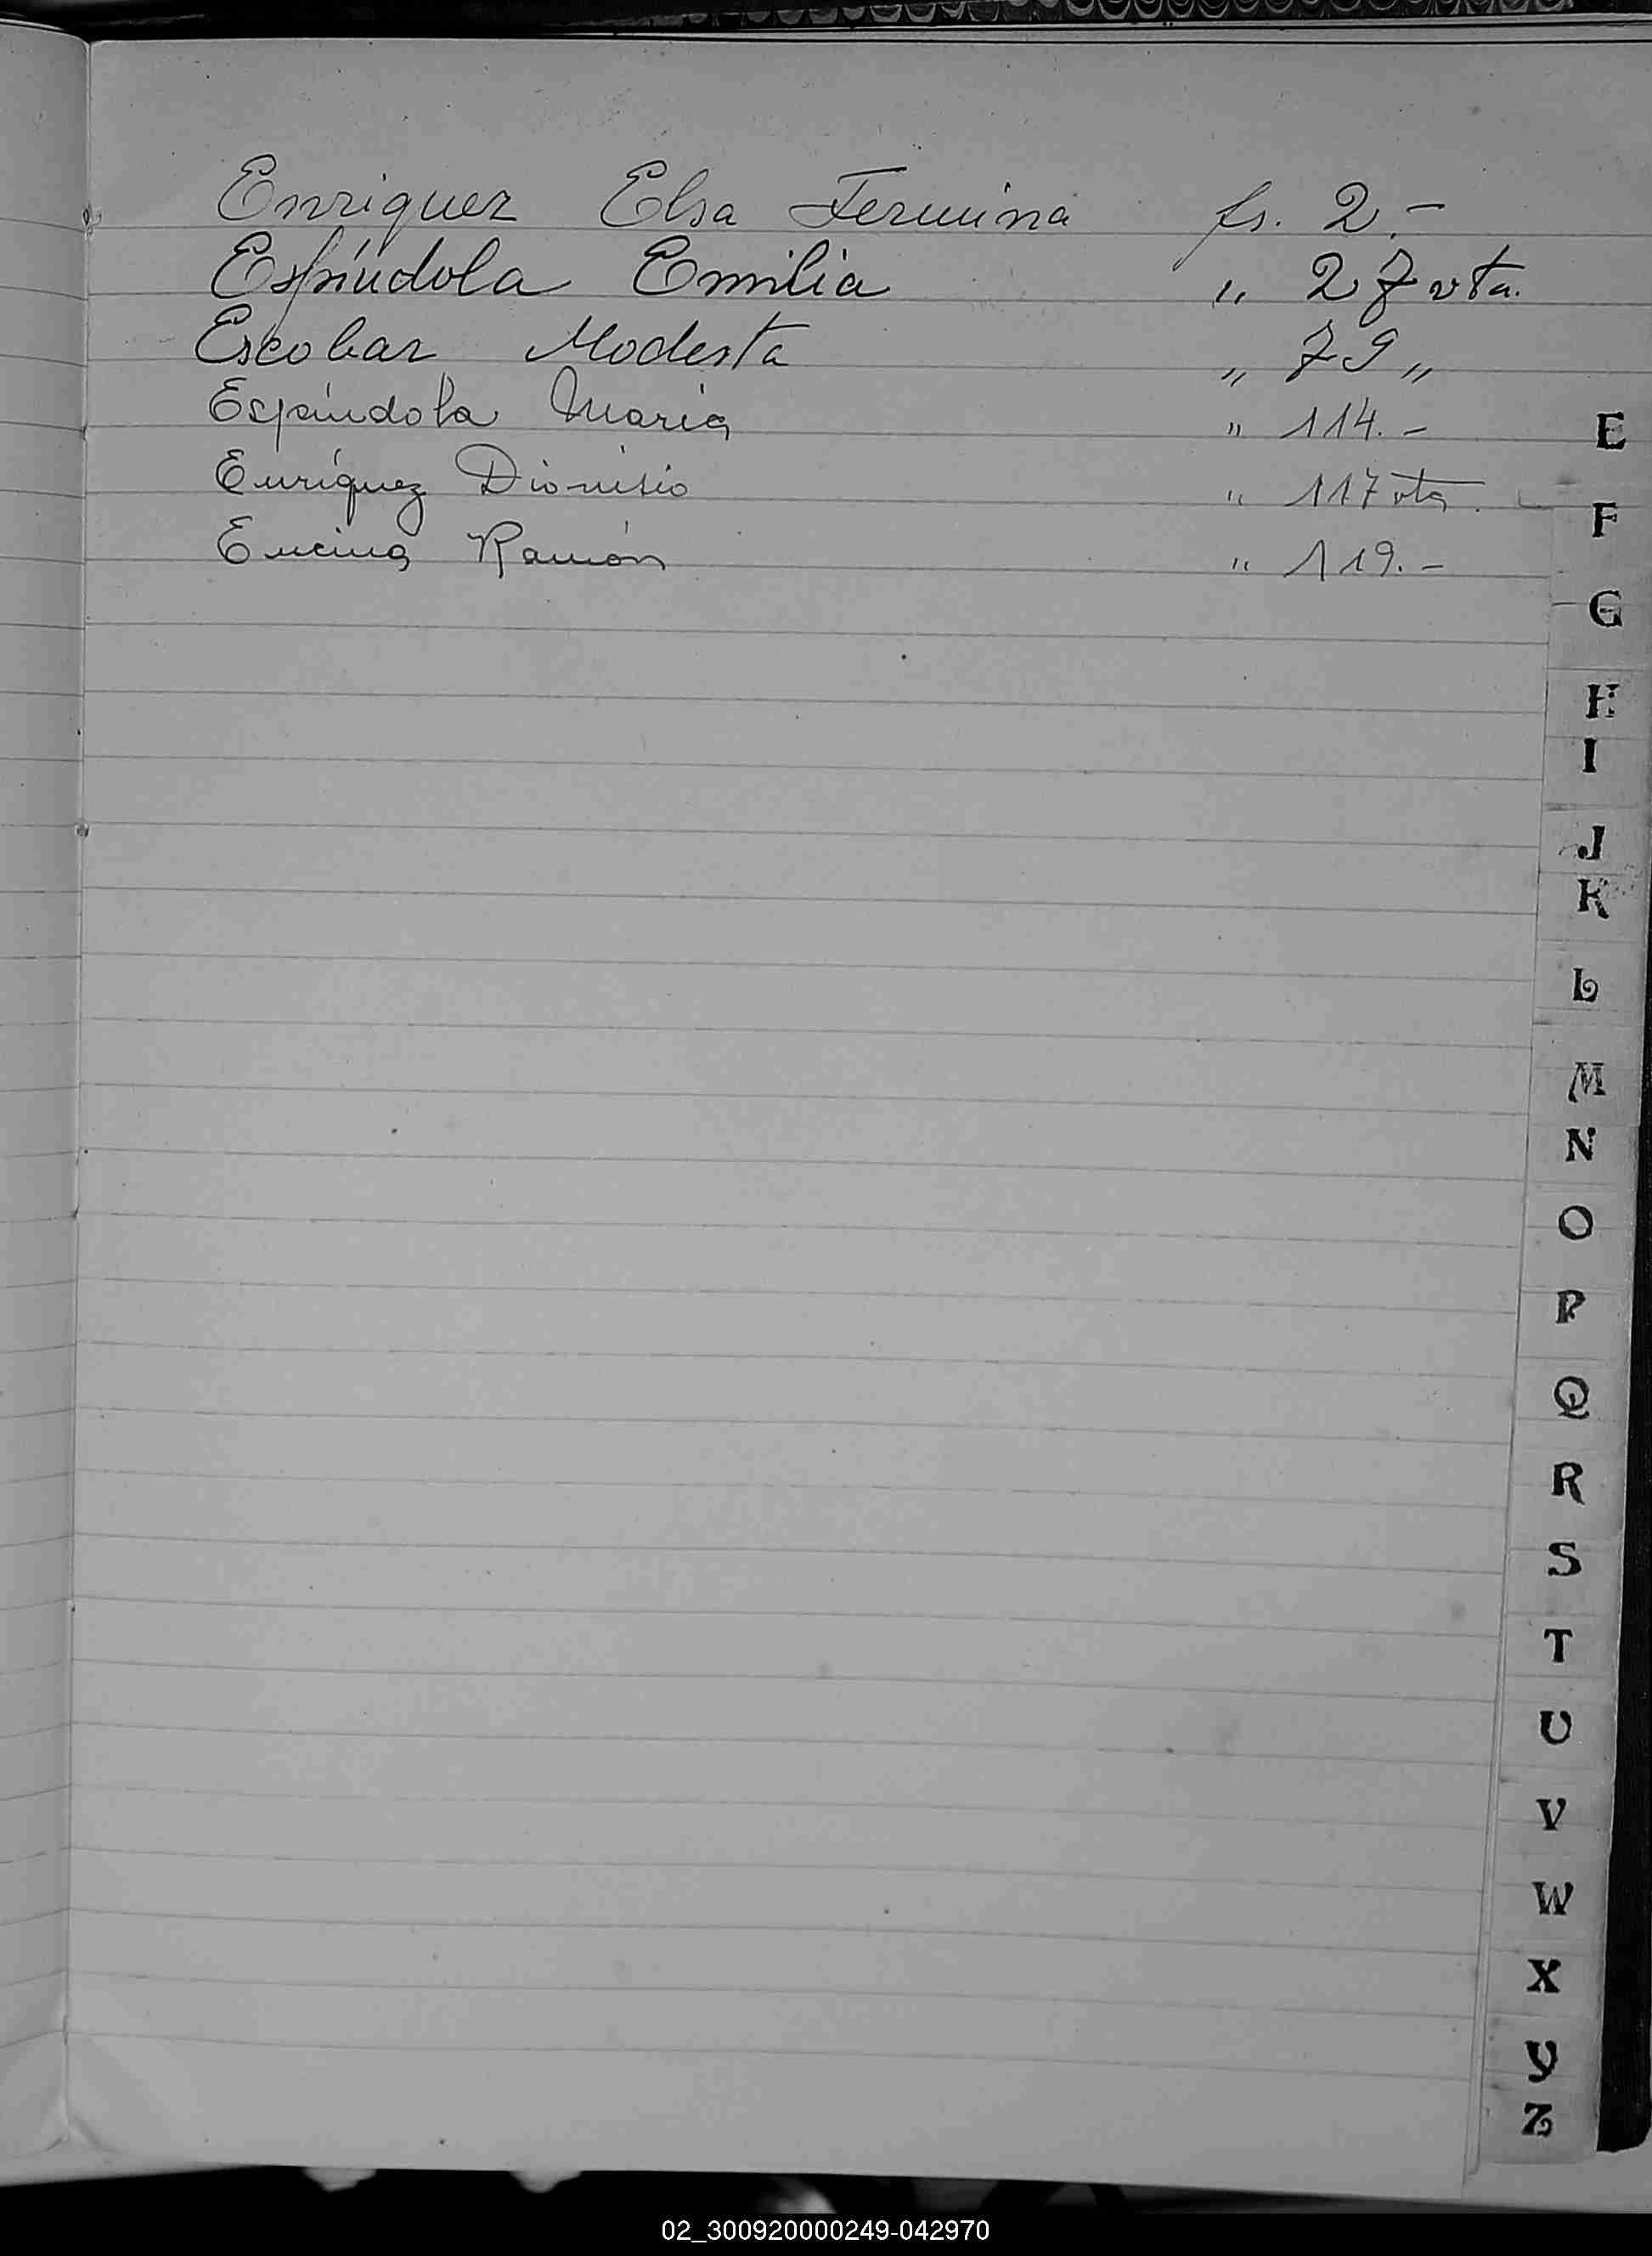 Enriquez Elsa Fermina fs. 2.-
Espíndola Emilia " 27 vta.
Escobar Modesta " 79 "
Espíndola Maria " 114.-
Enríquez Dionisio " 117 vta.
Encina Ramón " 119.-
E
F
G
H
I
J
K
L
M
N
O
P
Q
R
S
T
U
V
W
X
Y
Z
02_300920000249-042970